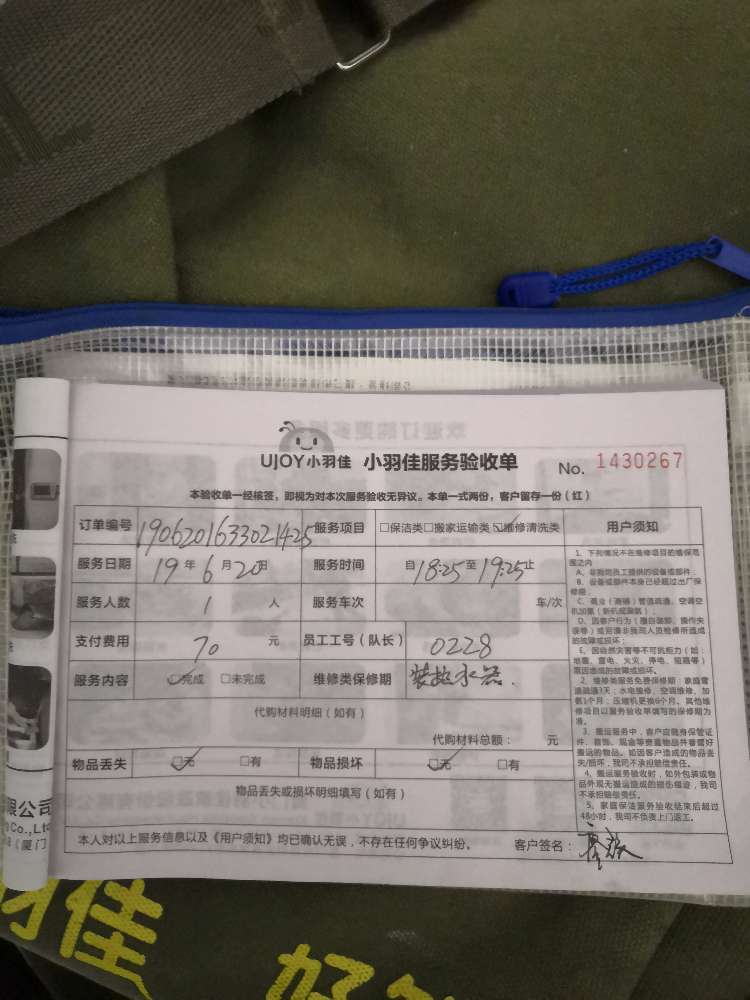 UJOY小羽佳 小羽佳服务验收单 No. 1430267
本验收单一经核签，即视为对本次服务验收无异议。本单一式两份，客户留存一份（红）
订单编号 1906201633021425 服务项目 □保洁类□搬家运输类☑维修清洗类
服务日期 19年6月20日 服务时间 自18:25至19:25止
服务人数 1 人 服务车次 车/次
支付费用 70 元 员工工号（队长） 0228
服务内容 ☑完成 □未完成 维修类保修期 装热水器
代购材料明细（如有）
代购材料总额： 元
物品丢失 ☑无 □有 物品损坏 ☑无 □有
物品丢失或损坏明细填写（如有）
本人对以上服务信息以及《用户须知》均已确认无误，不存在任何争议纠纷。 客户签名：
用户须知
1、下列情况不在维修项目的维保范
围之内
A、非我司员工提供的设备或部件；
B、设备或部件本身已经超过出厂保
修期；
C、商业（商铺）管道疏通、空调空
D、因客户行为（擅自装卸、操作失
误等）或另请非我司人员检修所造成
的故障或损坏；
E、因自然灾害等不可抗拒力（如：
地震、雷电、火灾、停电、短路等）
原因造成的故障或损坏。
2、维修类服务免费保修期：家庭管
道疏通7天；水电维修、空调维修、加
氨1个月；压缩机更换6个月。其他维
修项目以服务验收单填写的保修期为
准。
3、搬运服务中，客户应随身保管证
件、首饰、现金等贵重物品并看管好
搬运的物品。如因客户造成的物品丢
失/损坏，我司不承担赔偿责任。
4、搬运服务验收时，如外包装或物
品外观无搬运造成的损伤痕迹，我司
不承担赔偿责任。
5、家庭保洁服务验收结束后超过
48小时，我司不负责上门返工。
限公司
Co.,Ltd
（厦门
羽佳
好